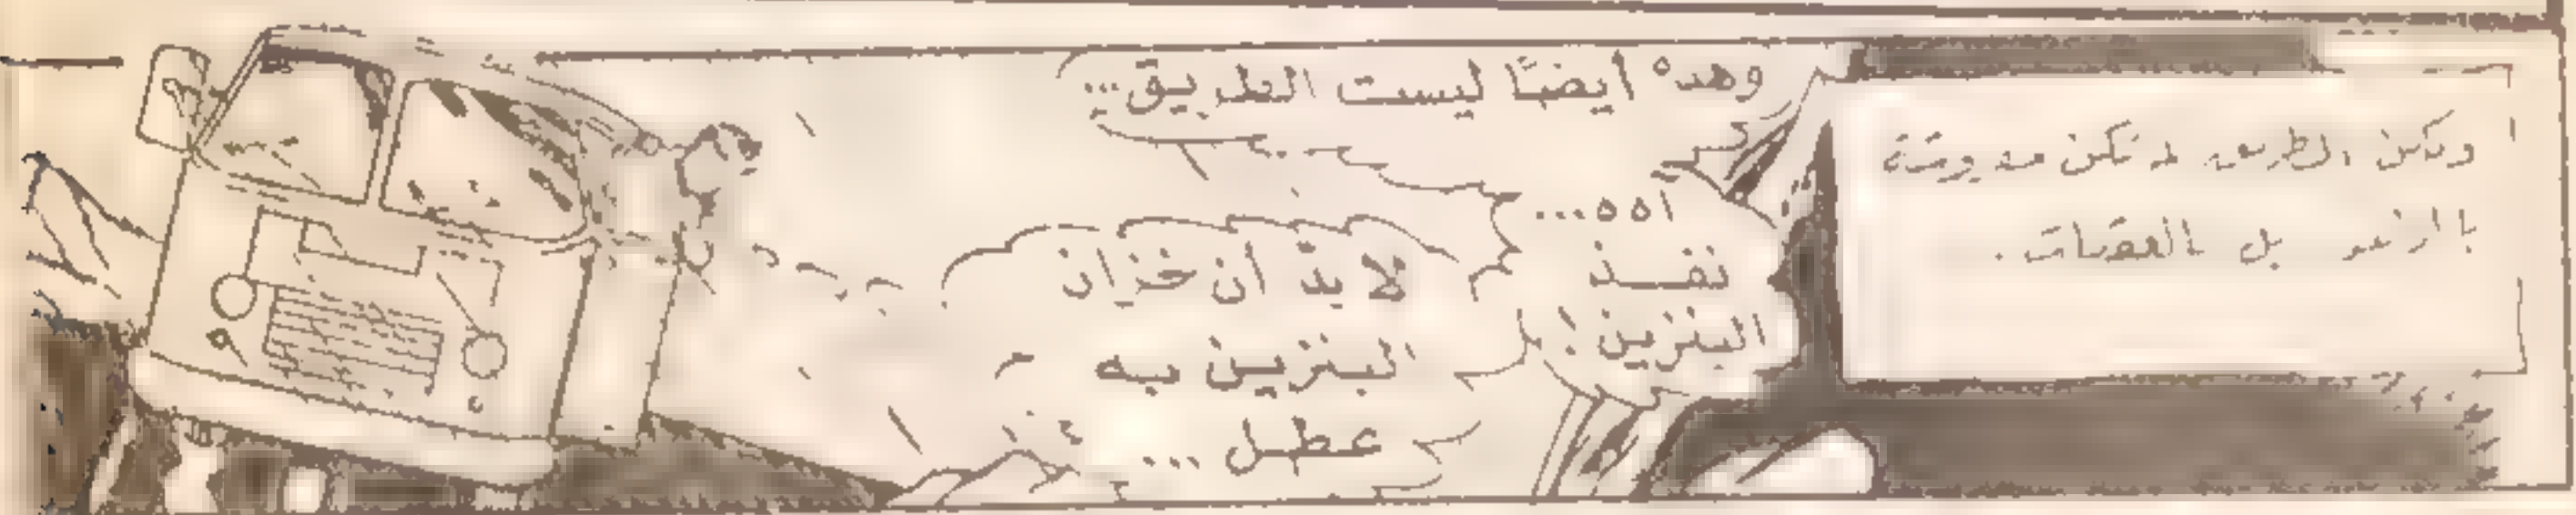 ولكن الطريق لم تكن مفروشة
بل بالعقبات .
وهذه أيضًا ليست الطريق...
آه ه...
نفـــذ
البنزين !
لا بدّ أن خزان
البنزين به
عطـل ...